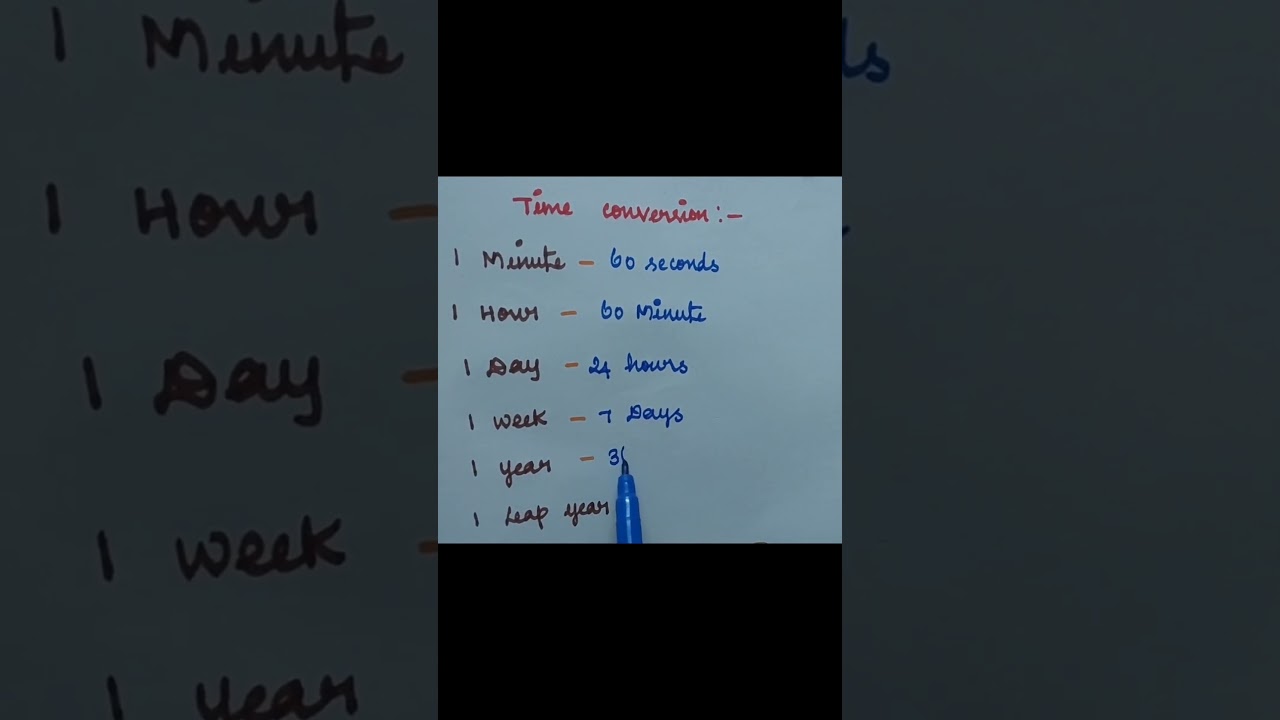 Time conversion:-
1 Minute - 60 seconds
1 Hour - 60 Minute
1 Day - 24 hours
1 week - 7 Days
1 year - 3
1 Leap year